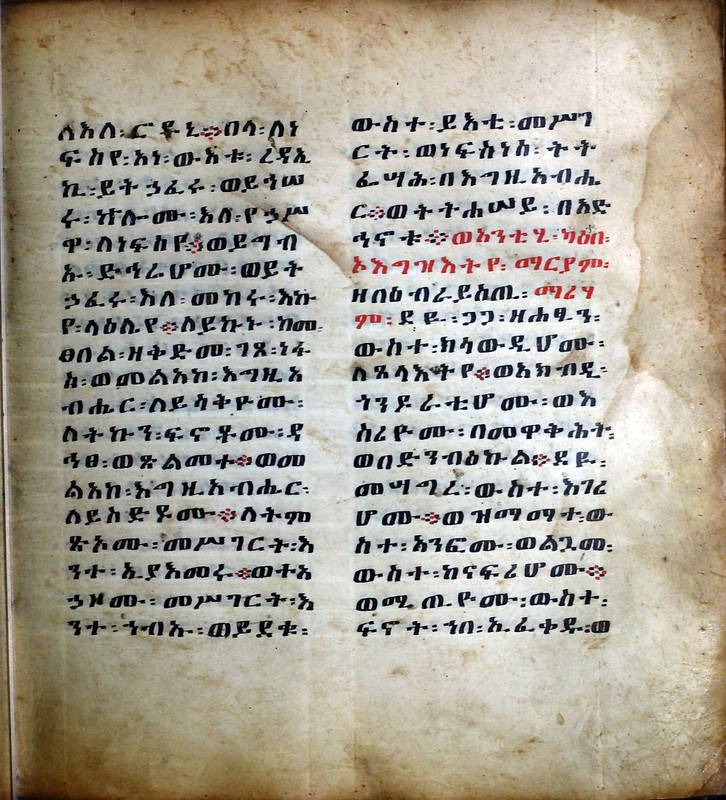 ለእለ፡ሮዱኒ፨በላ፡ለነ
ፍስየ፡አነ፡ውእቱ፡ረዳኢ
ኪ፡ይትኃፈሩ፡ወይኀሠ
ሩ፡ኵሎሙ፡እለ፡የኃሥ
ዋ፡ለነፍስየ፨ወይግብ
ኡ፡ድኅሬሆሙ፡ወይት
ኃፈሩ፡እለ፡መከሩ፡እኩ
የ፡ላዕሌየ፨ለይኩኑ፡ከመ
ፀበል፡ዘቅድመ፡ገጸ፡ነፋ
ስ፡ወመልአከ፡እግዚአ
ብሔር፡ለይሳቅዮሙ፡
ለትኩን፡ፍኖቶሙ፡ዳ
ኅፀ፡ወጽልመተ፨ወመ
ልአከ፡እግዚአብሔር፡
ለይስድዶሙ፨ለትም
ጽኦሙ፡መሥገርት፡እ
ንተ፡ኢያእመሩ፨ወተአ
ኃዞሙ፡መሥገርት፡እ
ንተ፡ኀብኡ፡ወይደቁ፡
ውስተ፡ይእቲ፡መሥገ
ርት፡ወነፍስነስ፡ትት
ፌሣሕ፡በእግዚአብሔ
ር፨ወትትሐሠይ፡በአድ
ኅኖቱ፨ወአንቲሂ፡ካዕበ፡
ኦእግዝእትየ፡ማርያም፡
ዘበዕብራይስጢ፡ማሪሃ
ም፡ደዪ፡ጋጋ፡ዘሐፂን፡
ውስተ፡ክሳውዲሆሙ፡
ለጸላእትየ፨ወአክብዲ፡
ጎንዶራቲሆሙ፡ወእ
ስሪዮሙ፡በመዋቅሕት፡
ወበድንብዕኩል፨ደዪ፡
መሣግረ፡ውስተ፡እገሪ
ሆሙ፨ወዝማማተ፡ው
ስተ፡አንፎሙ፡ወልጓመ፡
ውስተ፡ከናፍሪሆሙ፨
ወሚጢዮሙ፡ውስተ፡
ፍኖት፡ኀበ፡ኢፈቀዱ፡ወ